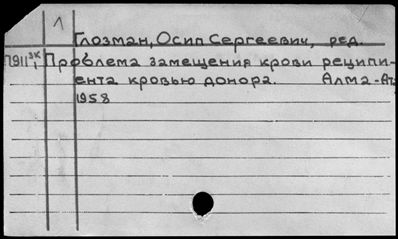 1
Глозман, Осип Сергеевич, ред.
П911зк1 Проблема замещения крови реципи-
ента кровью донора. Алма-Ата
1958